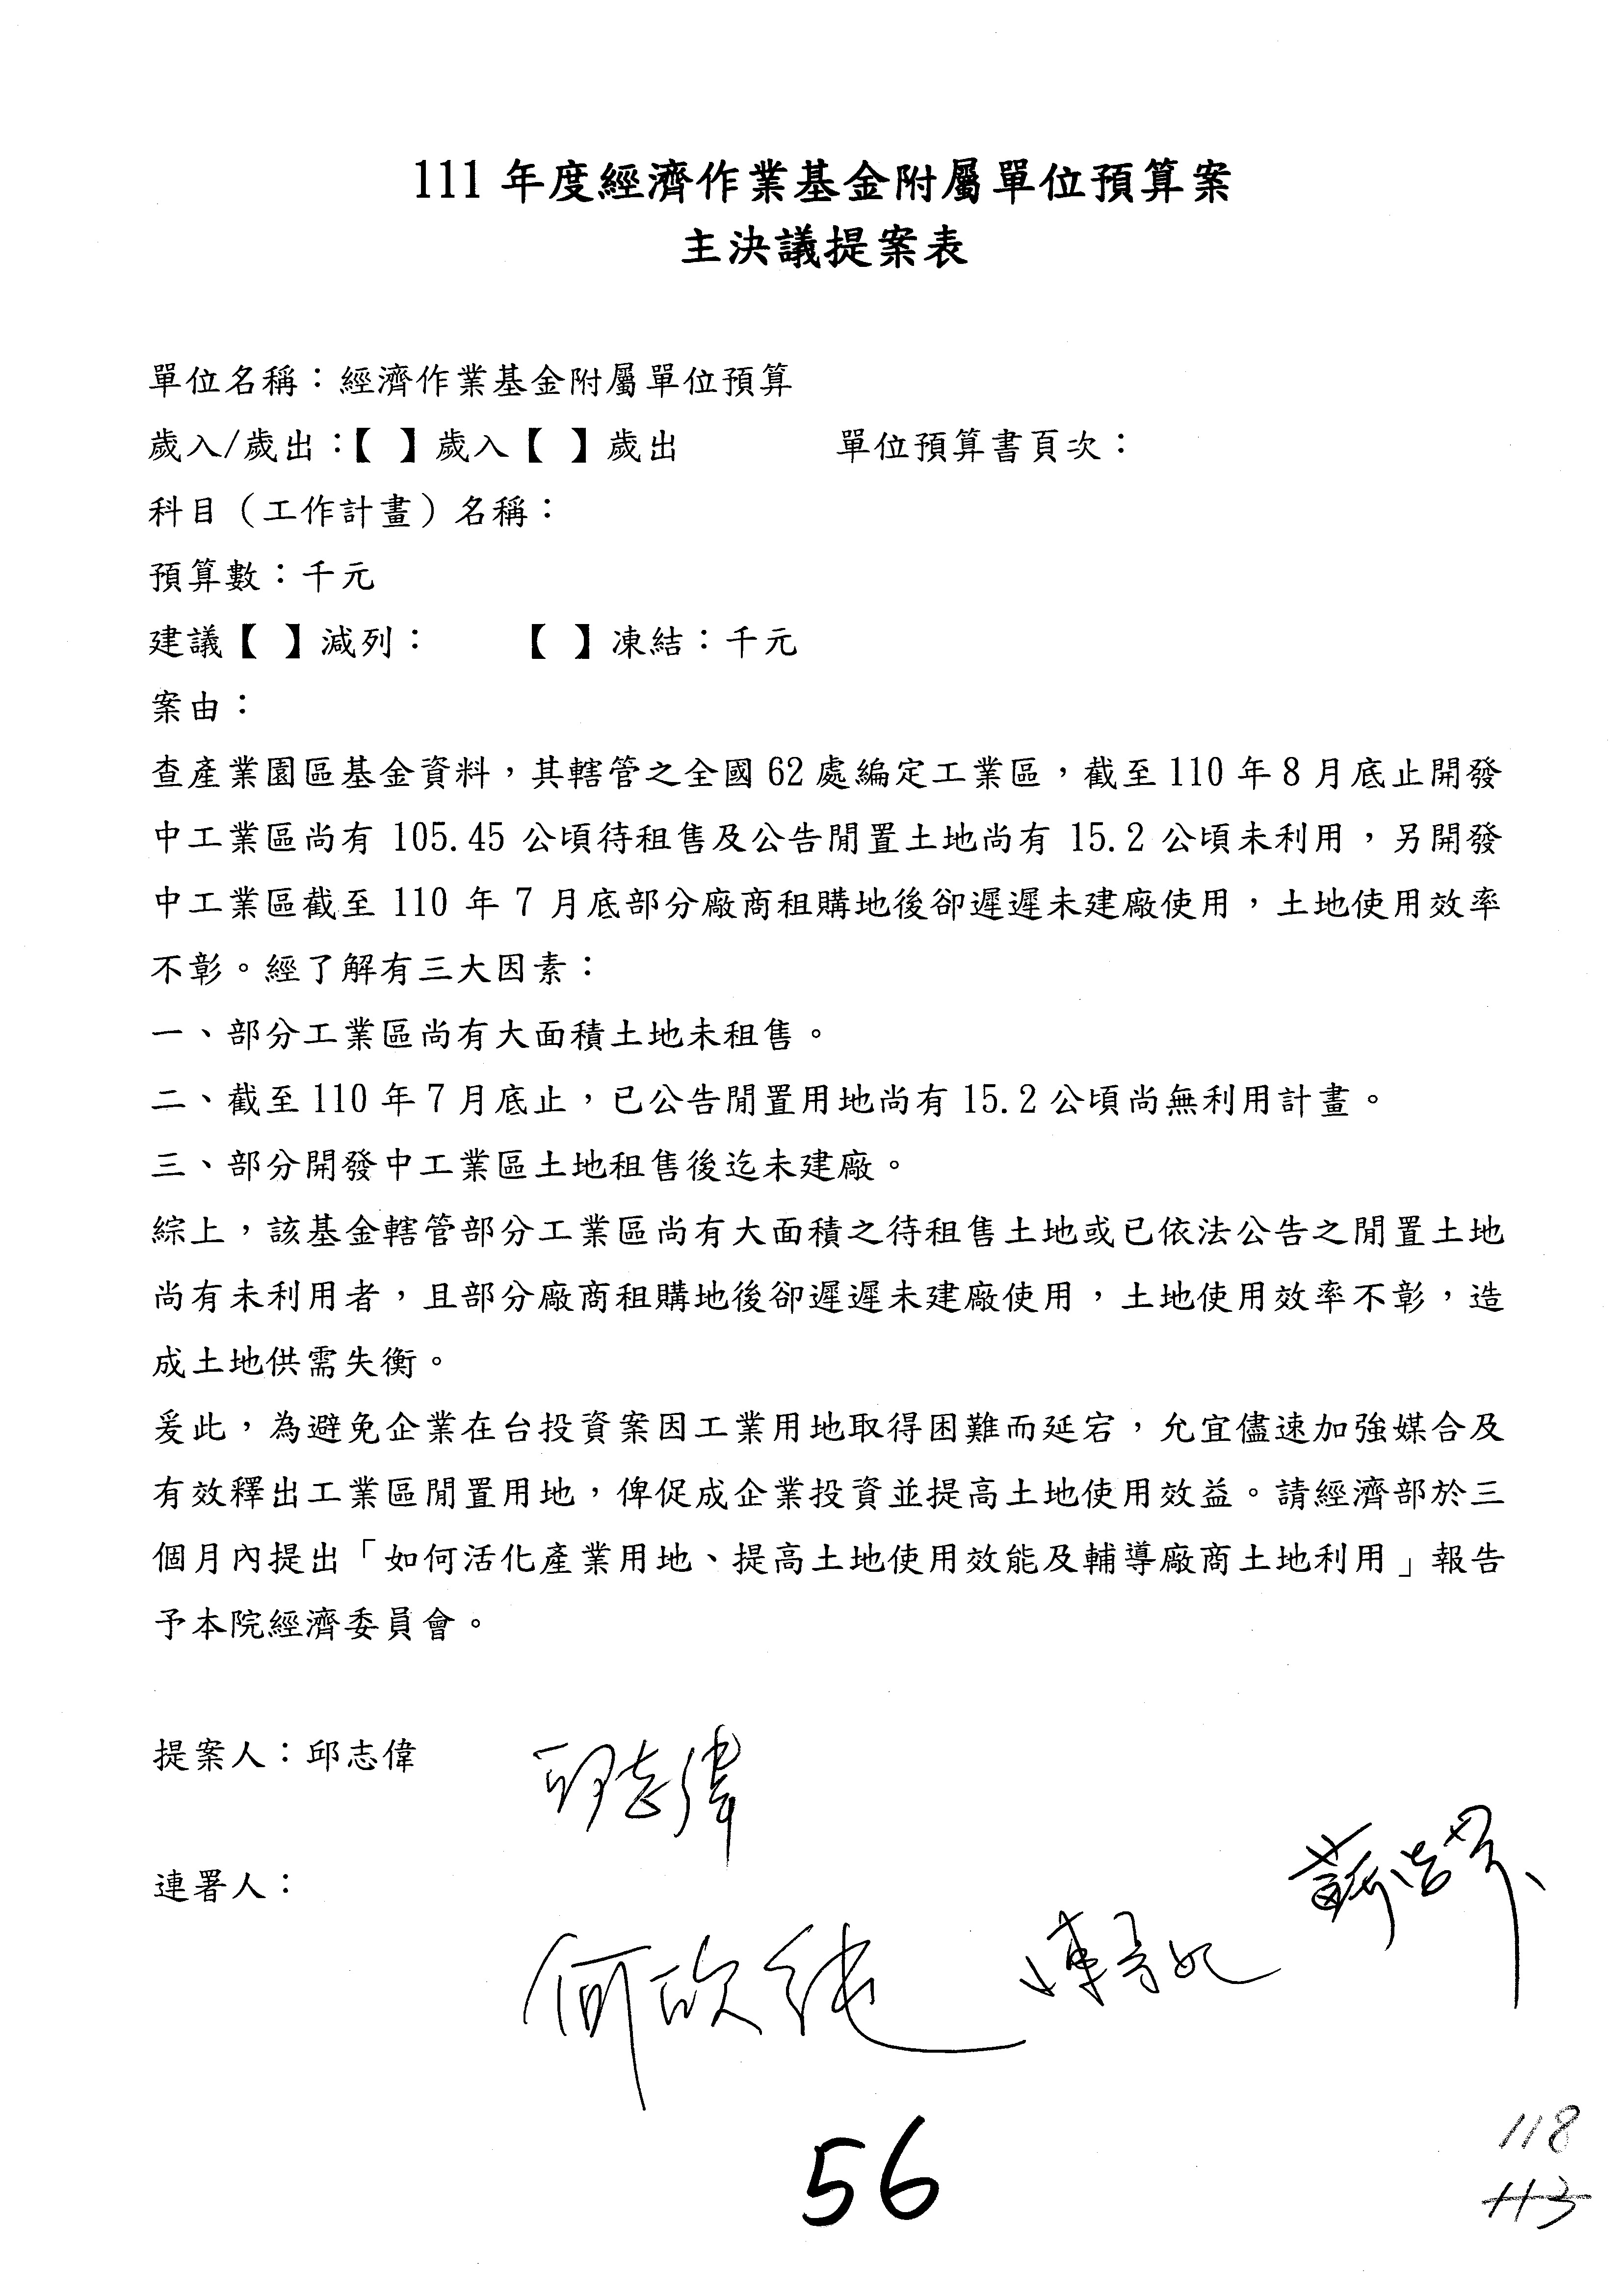 111 年度經濟作業基金附屬單位預算案
主決議提案表
單位名稱：經濟作業基金附屬單位預算
歲入/歲出：【 】歲入【 】歲出 單位預算書頁次：
科目（工作計畫）名稱：
預算數：千元
建議【 】減列： 【 】凍結：千元
案由：
查產業園區基金資料，其轄管之全國 62 處編定工業區，截至 110 年 8 月底止開發
中工業區尚有 105.45 公頃待租售及公告閒置土地尚有 15.2 公頃未利用，另開發
中工業區截至 110 年 7 月底部分廠商租購地後卻遲遲未建廠使用，土地使用效率
不彰。經了解有三大因素：
一、部分工業區尚有大面積土地未租售。
二、截至 110 年 7 月底止，已公告閒置用地尚有 15.2 公頃尚無利用計畫。
三、部分開發中工業區土地租售後迄未建廠。
綜上，該基金轄管部分工業區尚有大面積之待租售土地或已依法公告之閒置土地
尚有未利用者，且部分廠商租購地後卻遲遲未建廠使用，土地使用效率不彰，造
成土地供需失衡。
爰此，為避免企業在台投資案因工業用地取得困難而延宕，允宜儘速加強媒合及
有效釋出工業區閒置用地，俾促成企業投資並提高土地使用效益。請經濟部於三
個月內提出「如何活化產業用地、提高土地使用效能及輔導廠商土地利用」報告
予本院經濟委員會。
提案人：邱志偉 邱志偉
連署人：
何欣純 陳亭妃 蘇治芬
56
118
113